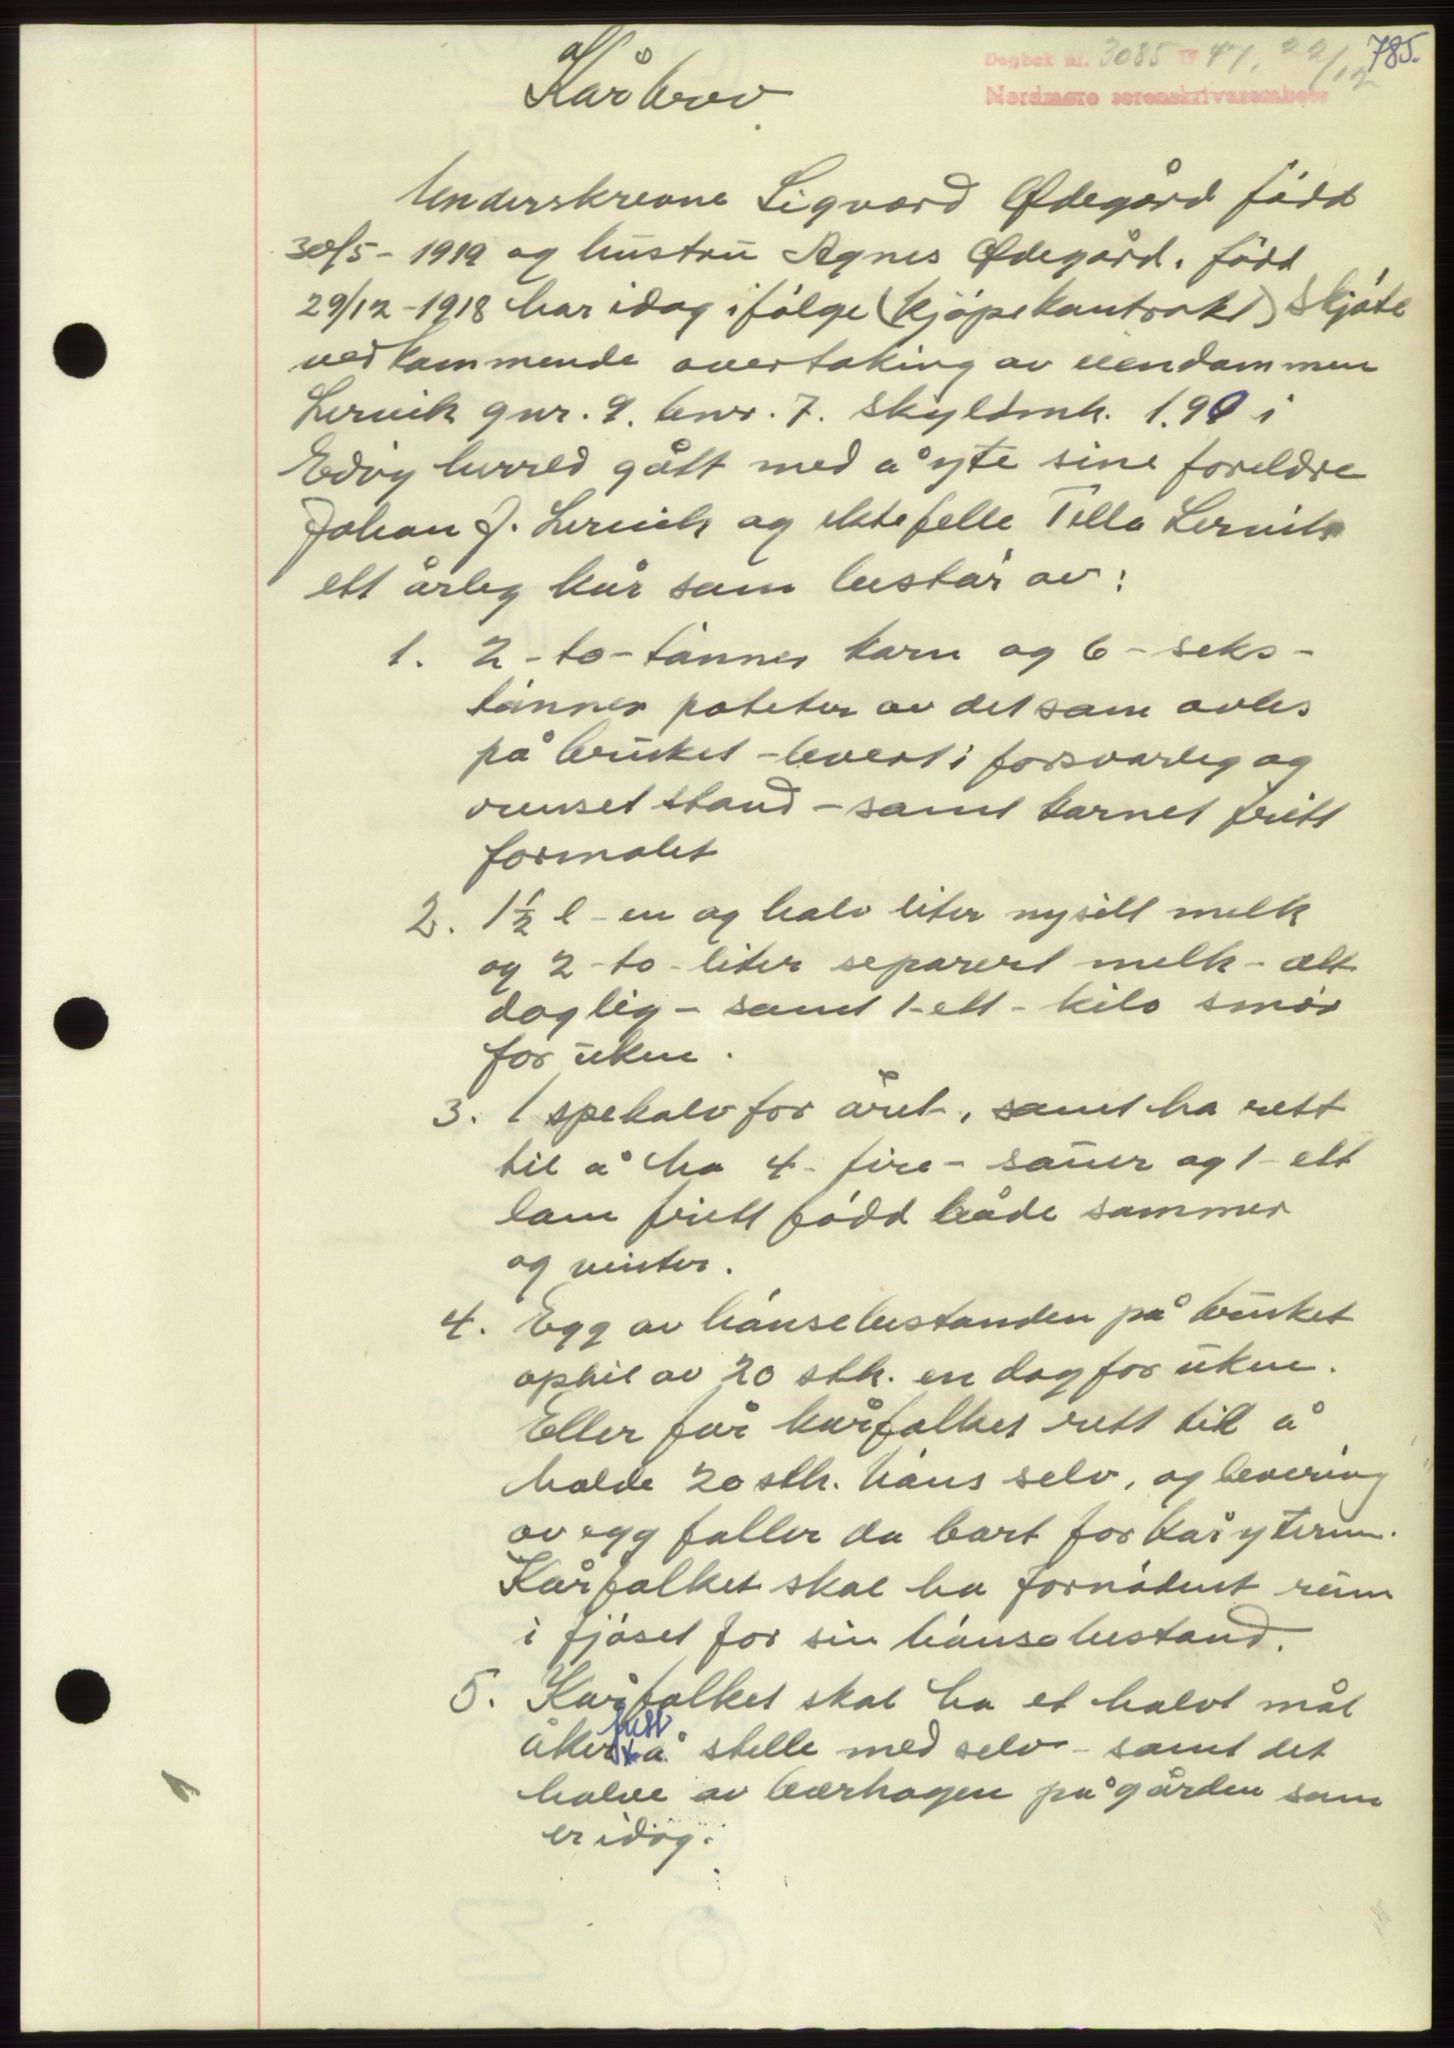 785.
Dagbok nr. 3085 19 47, 22/12
Nordmøre sorenskrivarembete
Kårbrev
Underskrevne Sigvard Ødegård född
30/5 - 1919 og hustru Agnes Ødegård. född
29/12 - 1918 har idag ifölge (kjöpekontrakt) skjöte
vedkommende overtaking av eiendommen
Lervik gnr. 9. bnr. 7. skyldmk. 1.90 i
Edöy herred gått med å yte sine foreldre
Johan J. Lervik og ektefelle Tella Lervik
ett årleg kår som består av:
1. 2 - to - tönner korn og 6 - seks -
tönner poteter av det som avles
på bruket - levert i forsvarleg og
renset stand - samt kornet fritt
formalet
2. 1½ l - en og halv liter nysilt melk
og 2 - to - liter separert melk - alt
daglig - samt 1 - ett - kilo smör
for uken.
3. 1 spekalv for året, samt ha rett
til å ha 4 - fire - sauer og 1 - ett
lam fritt född både sommer
og vinter.
4. Egg av hönsebestanden på bruket
ophil av 20 stk. en dag for uken.
Eller får kårfolket rett til å
holde 20 stk. höns selv, og levering
av egg faller da bort for kåryterne.
Kårfolket skal ha fornödent rum
i fjöset for sin hönsebestand.
5. Kårfolket skal ha et halvt mål
åker fritt å stelle med selv - samt det
halve av bærhagen på gården som
er idag.